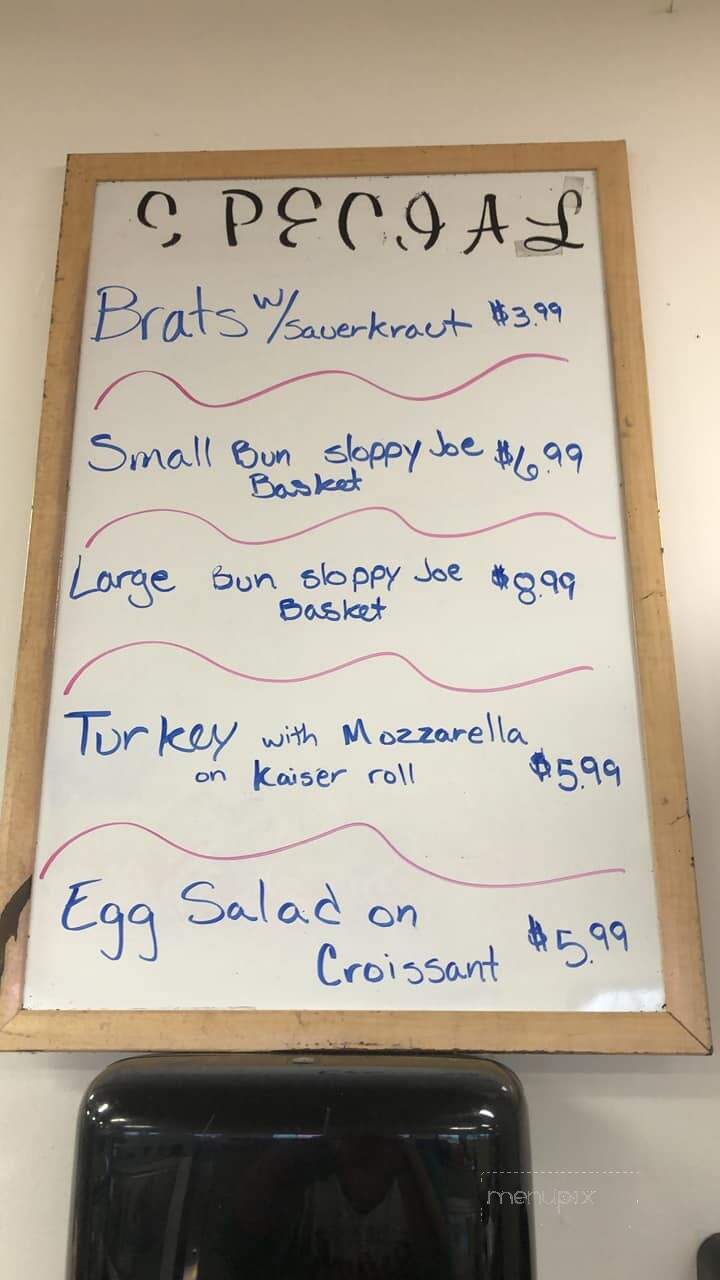 SPECIAL
Brats w/sauerkraut $3.99
Small Bun sloppy Joe $6.99
Basket
Large Bun sloppy Joe $8.99
Basket
Turkey with Mozzarella
on Kaiser roll $5.99
Egg Salad on
Croissant $5.99
menupix